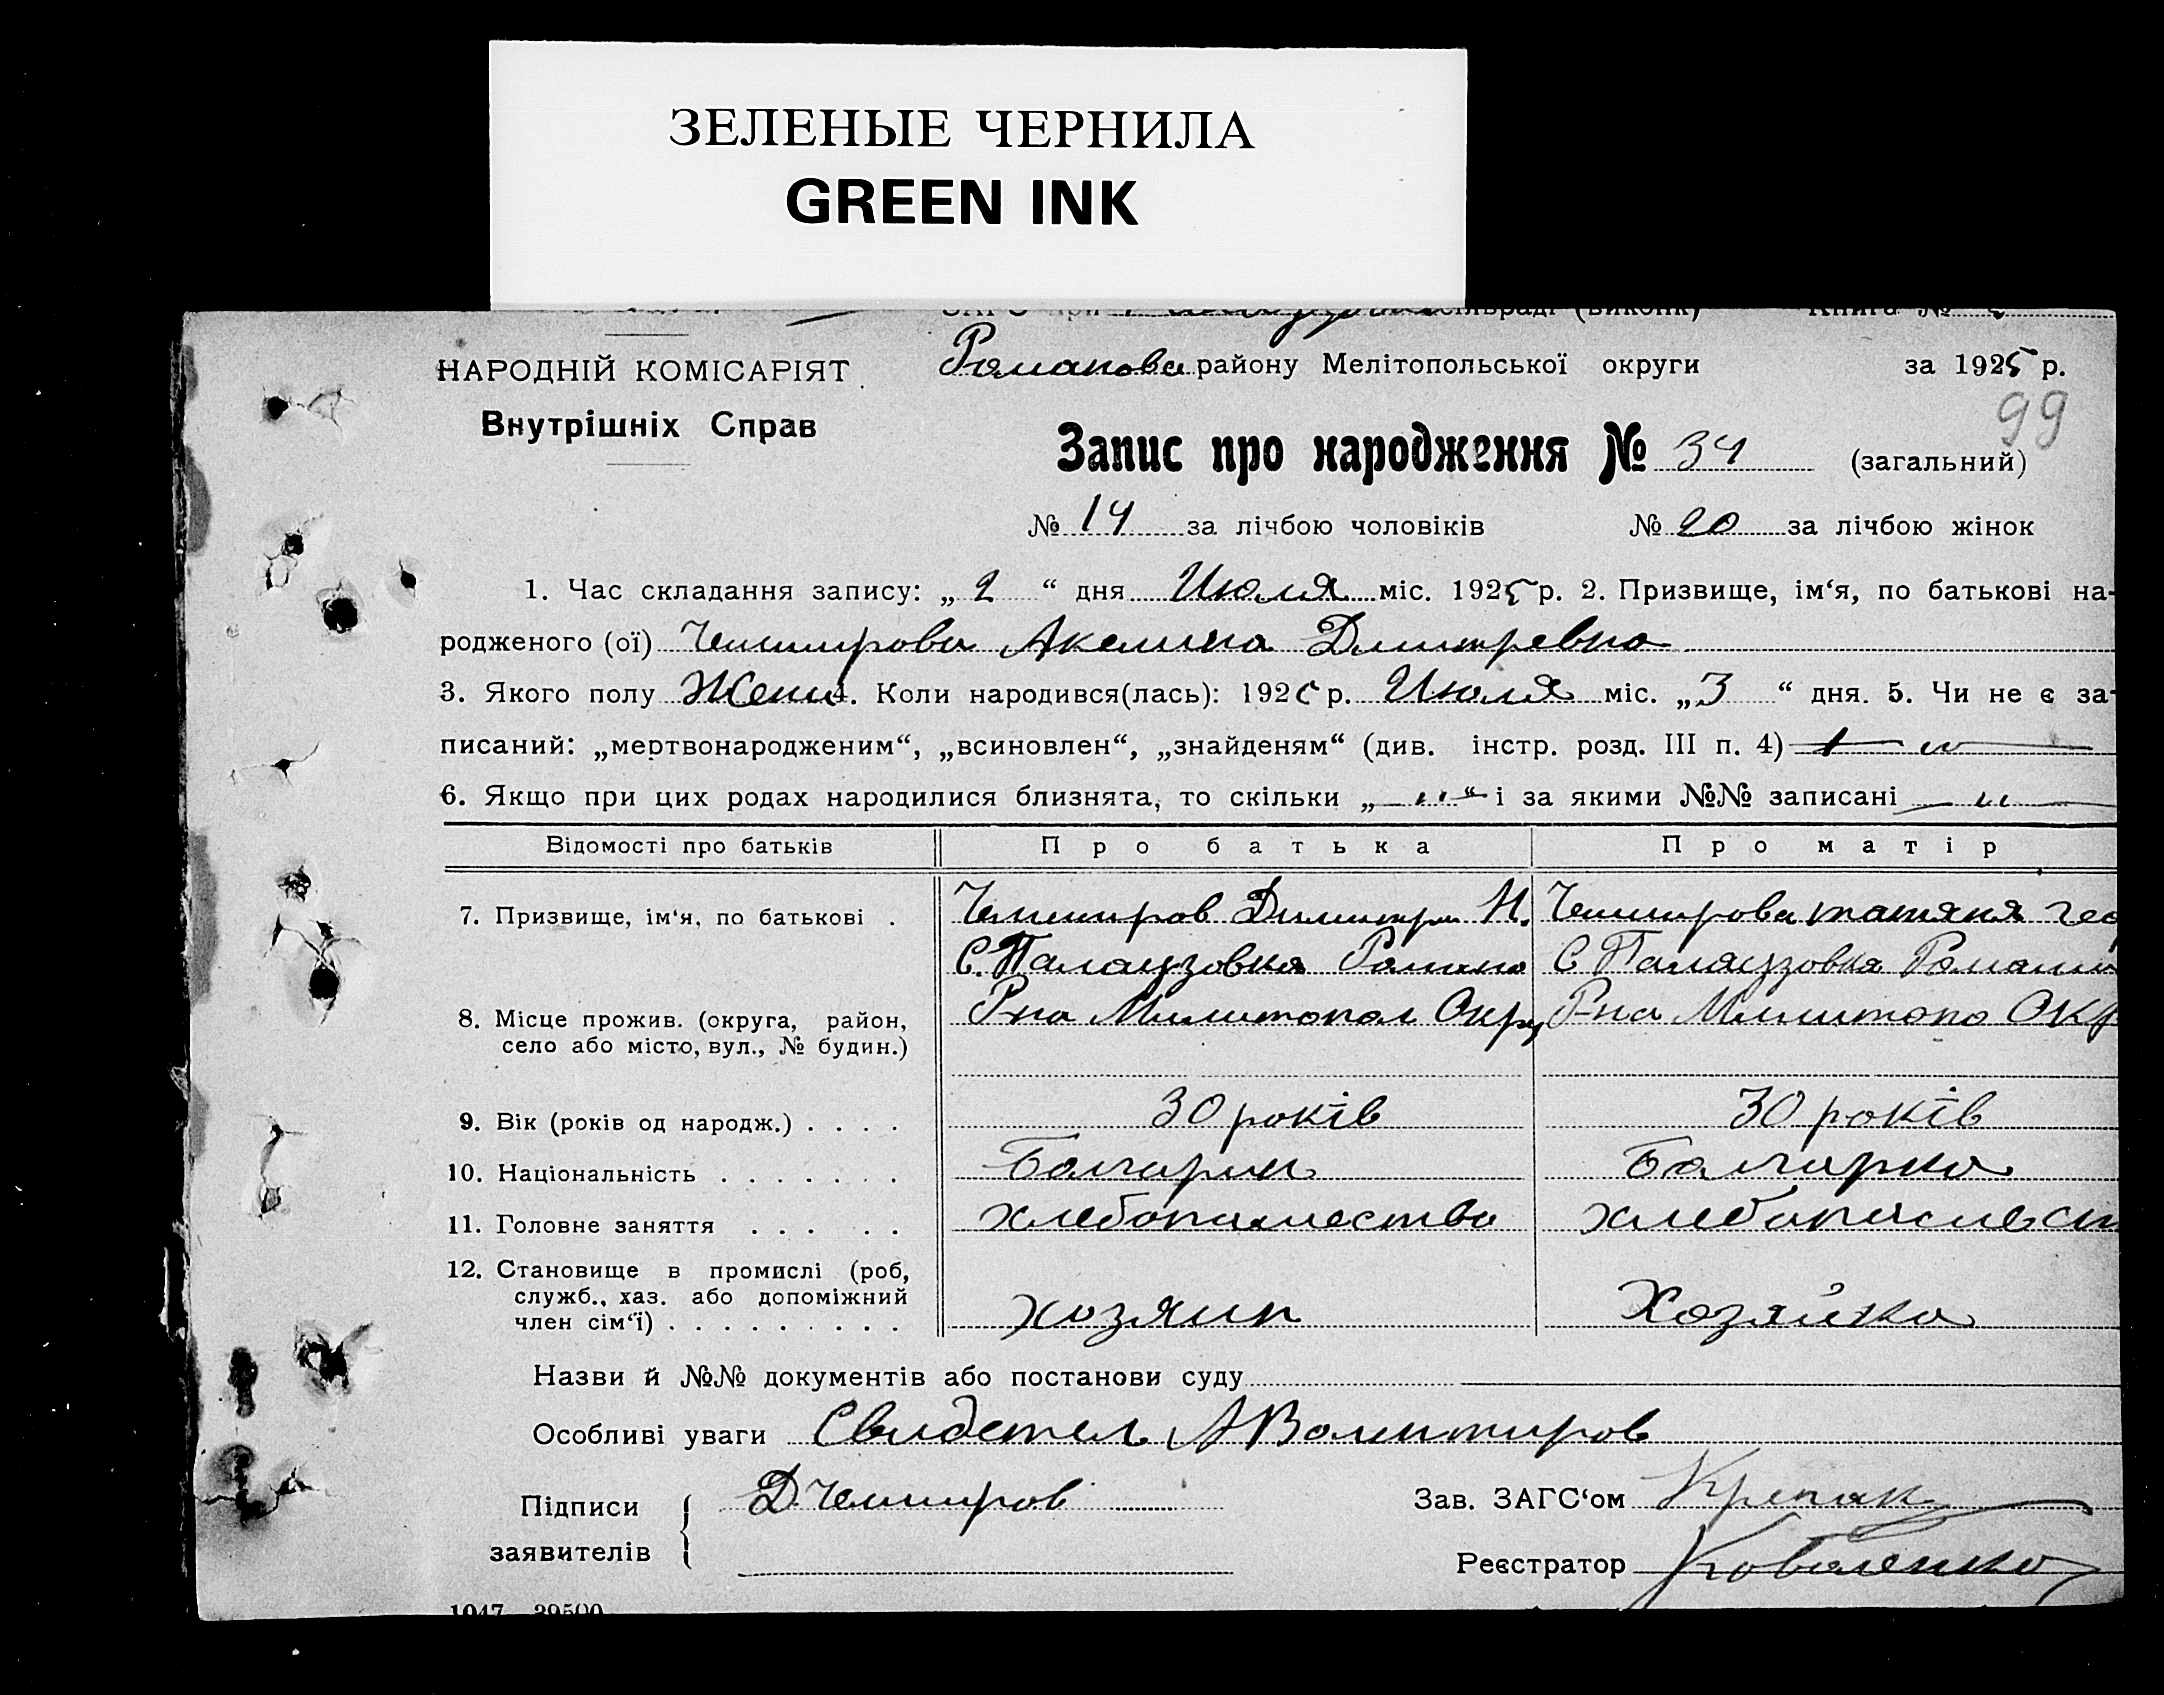 ЗЕЛЕНЫЕ ЧЕРНИЛА
GREEN INK
Книга №
НАРОДНІЙ КОМІСАРІЯТ
Внутрішніх Справ
Романова району Мелітопольської округи за 1925 р.
99
Запис про народження № 34 (загальний)
№ 14 за лічбою чоловіків № 20 за лічбою жінок
1. Час складання запису: „ 2 “ дня Июля міс. 1925 р. 2. Призвище, ім‘я, по батькові на-
родженого (ої) Чешмирова Акелина Дмитревна
3. Якого полу Жени 4. Коли народився(лась): 1925 р. Июля міс. „ 3 “ дня. 5. Чи не є за-
писаний: „мертвонародженим“, „всиновлен“, „знайденям“ (див. інстр. розд. III п. 4)
6. Якщо при цих родах народилися близнята, то скільки „ — “ і за якими №№ записані — „
Відомості про батьків Про батька Про матір
7. Призвище, ім‘я, по батькові . Чешмиров Димитри И. Чешмирова татяня гео
С. Палаузовка Романо С Палаузовка Романи
8. Місце прожив. (округа, район, Р-на Милитопол Окру Р-на Милитопо Окр
село або місто, вул., № будин.)
9. Вік (років од народж.) . . . . 30 років 30 років
10. Національність . . . . . . . Болгарин Болгарка
11. Головне заняття . . . . . хлебопашество хлебопашест
12. Становище в промислі (роб,
служб., хаз. або допоміжний
член сім‘ї) . . . . . . . . . хозяин Хозяйка
Назви й №№ документів або постанови суду
Особливі уваги Свидетел А Волентиров
Підписи Д. Чешмиров Зав. ЗАГС‘ом Крепак
заявителів
Реєстратор Коваленко
1047 39500